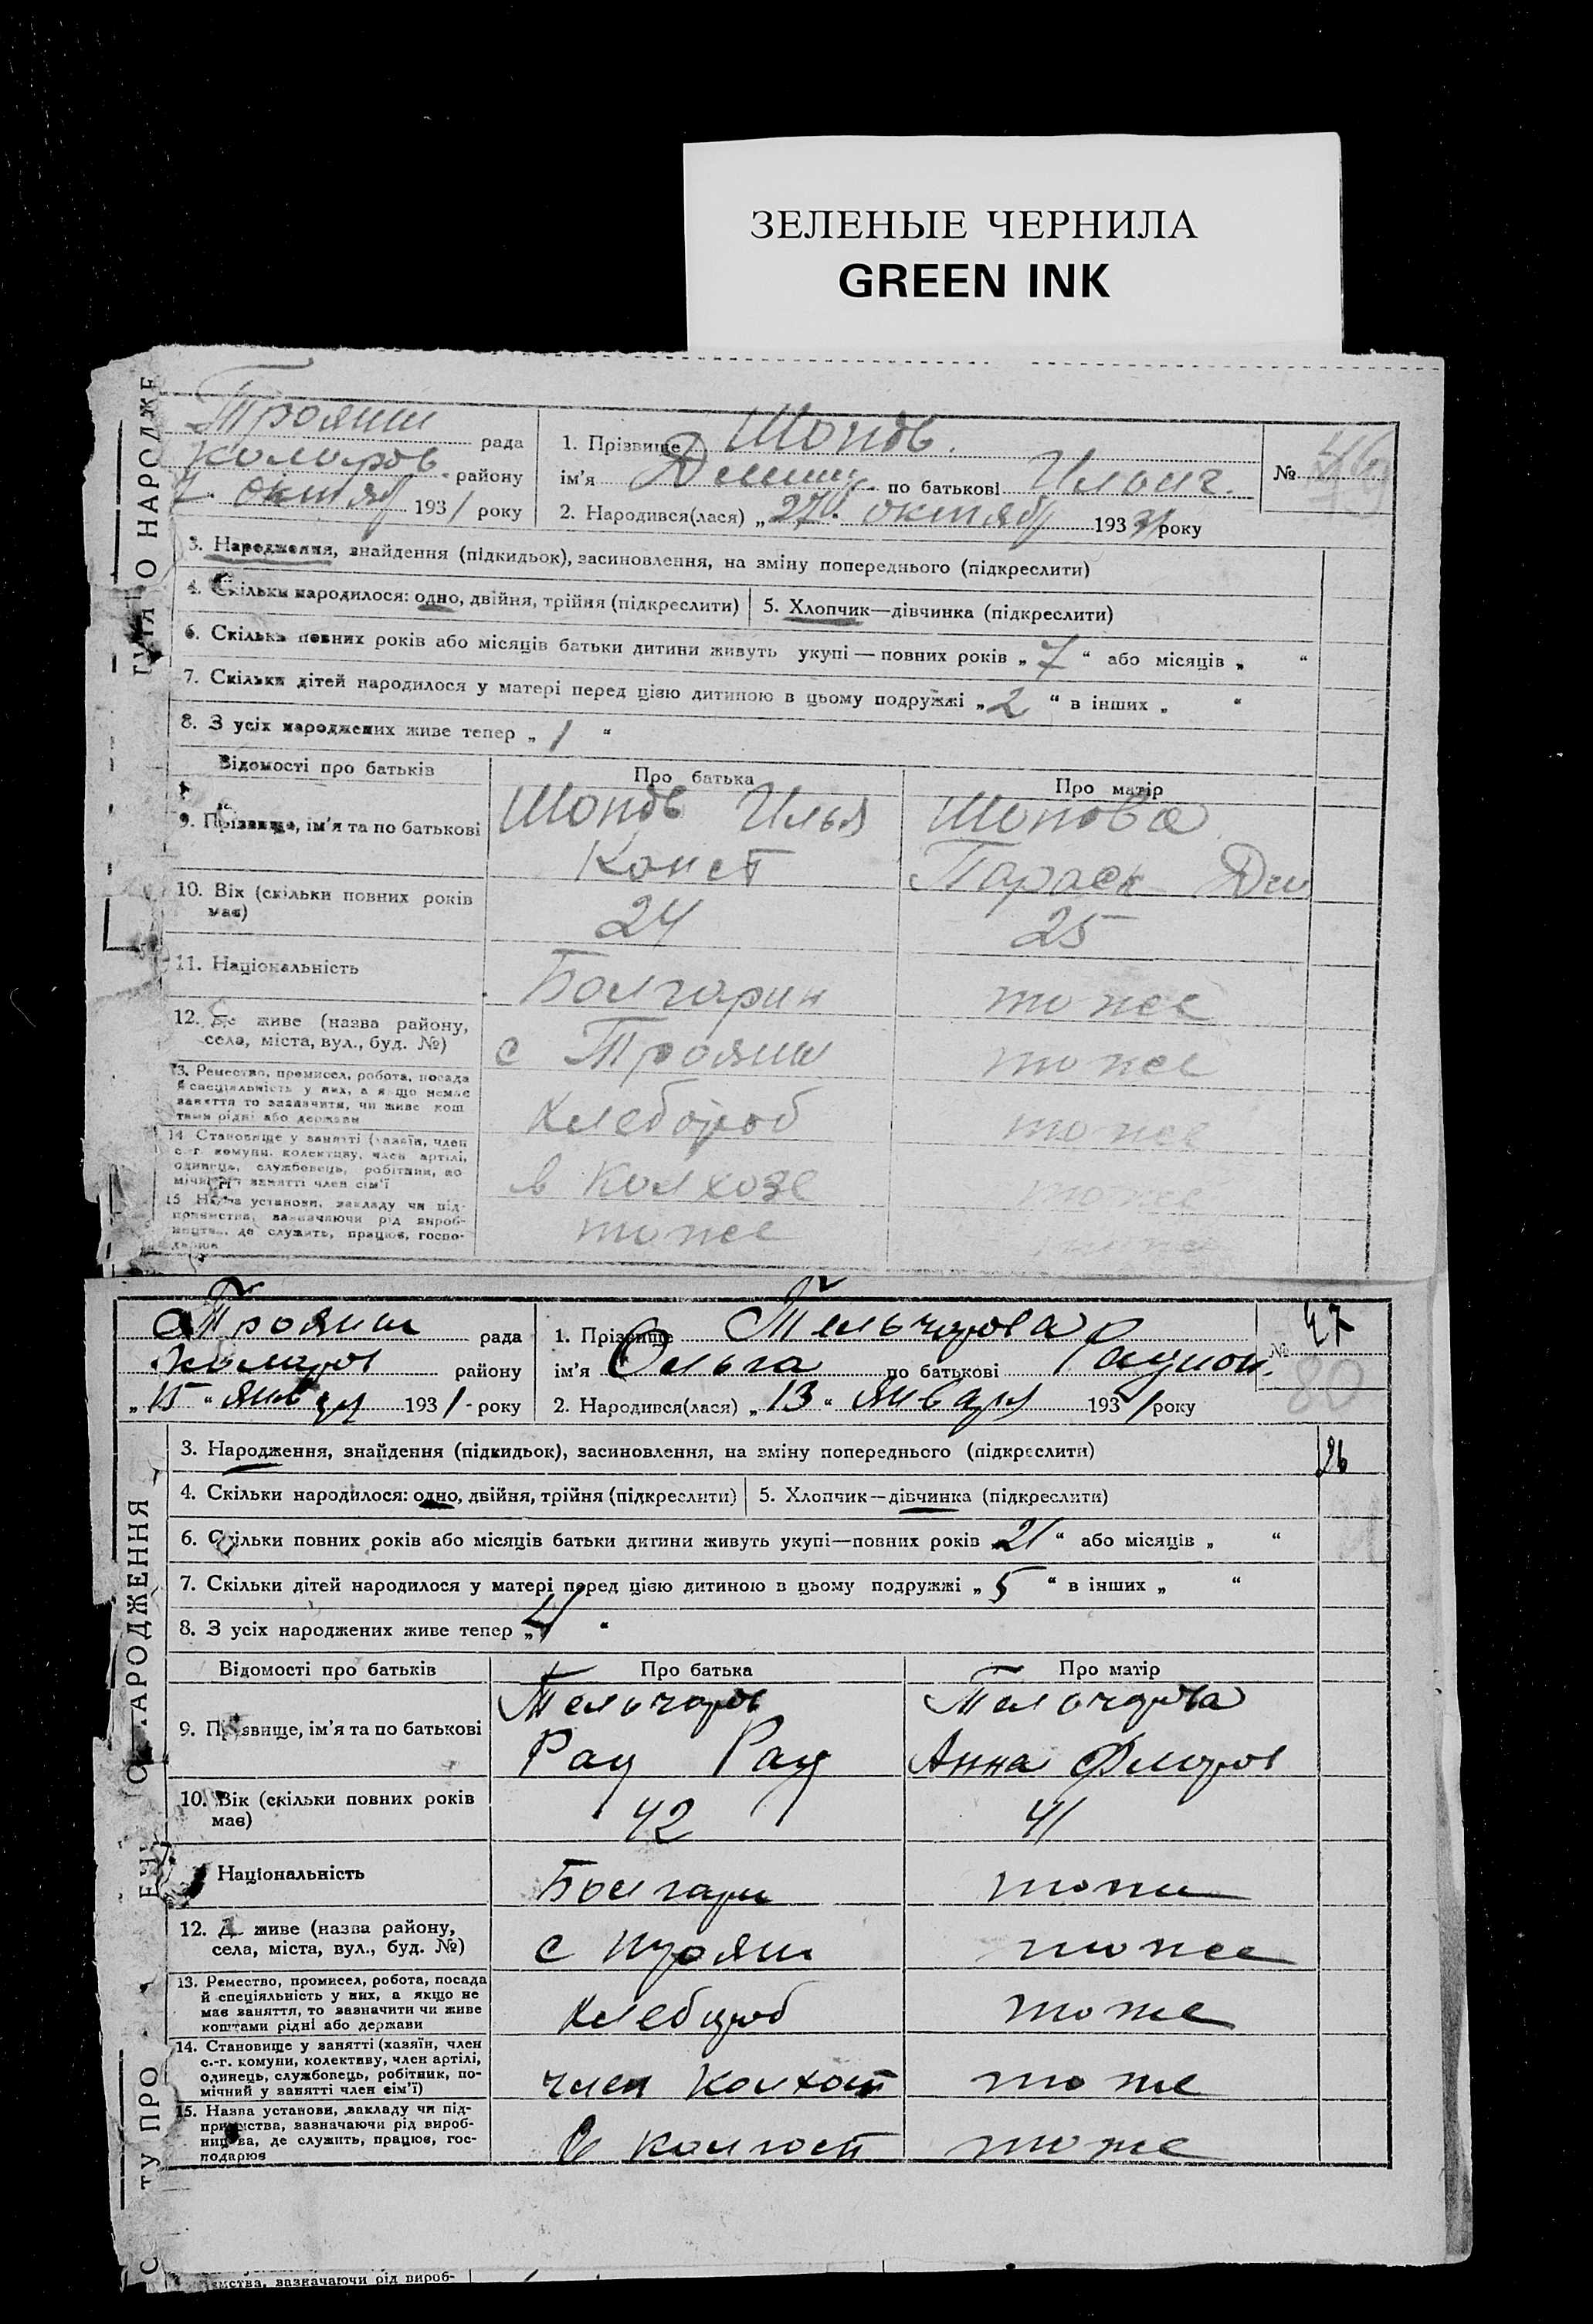 ЗЕЛЕНЫЕ ЧЕРНИЛА
GREEN INK
Трояни рада
Коларов району
7 октяб 1931 року
1. Прізвище Шопов.
ім'я по батькові Ильич.
2. Народився(лася) „27“ октяб 1931 року
№
3. Народження, знайдення (підкидьок), засиновлення, на зміну попереднього (підкреслити)
4. Скільки народилося: одно, двійня, трійня (підкреслити) 5. Хлопчик—дівчинка (підкреслити)
6. Скільки повних років або місяців батьки дитини живуть укупі—повних років „7“ або місяців „ “
7. Скільки дітей народилося у матері перед цією дитиною в цьому подружжі „2“ в інших „ “
8. З усіх народжених живе тепер „1“
Відомості про батьків Про батька Про матір
9. Прізвище, ім'я та по батькові Шопов Илья Конст Шопова Параск
10. Вік (скільки повних років має) 24 25
11. Національність Болгарин тоже
12. Де живе (назва району, села, міста, вул., буд. №) с Трояни тоже
13. Ремество, промисел, робота, посада й спеціяльність у них, а якщо немає заняття то зазначити, чи живе кош тами рідні або держави Хлебороб тоже
14 Становище у занятті (хазяїн, член с.-г. комуни, колективу, член артілі, одинець, службовець, робітник, по мічний у занятті член сім'ї в колхозе тоже
15 Назва установи, закладу чи під- приємства, зазначаючи рід вироб- ництва, де служить, працює, госпо- дарює тоже тоже
Трояни рада
Коларов району
„15“ январ 1931 року
1. Прізвище Тельчарова
ім'я Ольга по батькові Радион.
2. Народився(лася) „13“ январ 1931 року
№ 47
80
26
3. Народження, знайдення (підкидьок), засиновлення, на зміну попереднього (підкреслити)
4. Скільки народилося: одно, двійня, трійня (підкреслити) 5. Хлопчик—дівчинка (підкреслити)
6. Скільки повних років або місяців батьки дитини живуть укупі—повних років „21“ або місяців „ “
7. Скільки дітей народилося у матері перед цією дитиною в цьому подружжі „5“ в інших „ “
8. З усіх народжених живе тепер „4“
Відомості про батьків Про батька Про матір
9. Прізвище, ім'я та по батькові Тельчаров Рад Рад Тельчарова Анна Федоров
10. Вік (скільки повних років має) 42 41
Національність Болгари тоже
12. Де живе (назва району, села, міста, вул., буд. №) с Трояни тоже
13. Ремество, промисел, робота, посада й спеціяльність у них, а якщо не має заняття, то зазначити чи живе коштами рідні або держави Хлебороб тоже
14. Становище у занятті (хазяїн, член с.-г. комуни, колективу, член артілі, одинець, службовець, робітник, по- мічний у занятті член сім'ї) член тоже
15. Назва установи, закладу чи під- приємства, зазначаючи рід вироб- ництва, де служить, працює, гос- подарює в тоже
зазначаючи рід вироб-